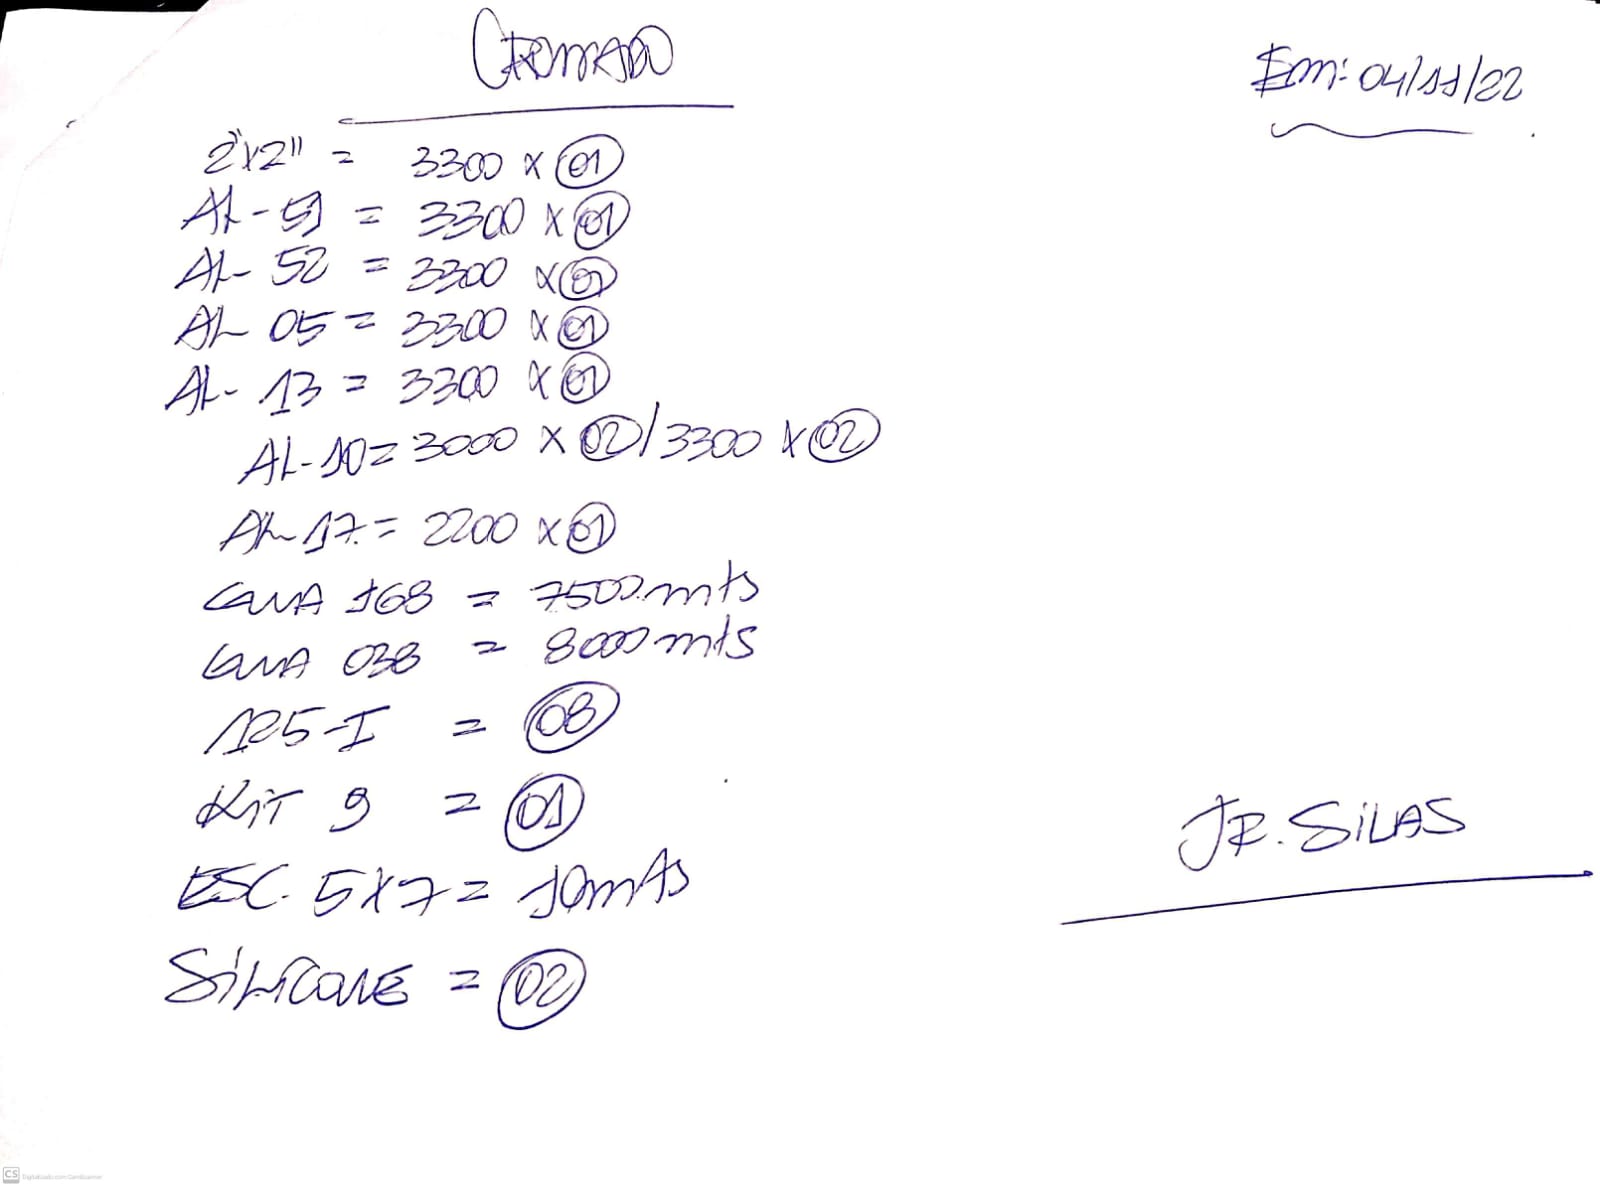 CROMADO
Em: 04/11/22
2"x2" = 3300 x 01
AL-51 = 3300 x 01
AL-52 = 3300 x 01
AL 05 = 3300 x 01
AL-13 = 3300 x 01
AL-10 = 3000 x 02/3300 x 02
AL 17 = 2200 x 01
GUIA 168 = 7500 mts
GUIA 038 = 8000 mts
125-I = 08
KIT 9 = 01
JR. SILAS
ESC. 5x7 = 10 mts
SILICONE = 02
CS Digitalizado com CamScanner